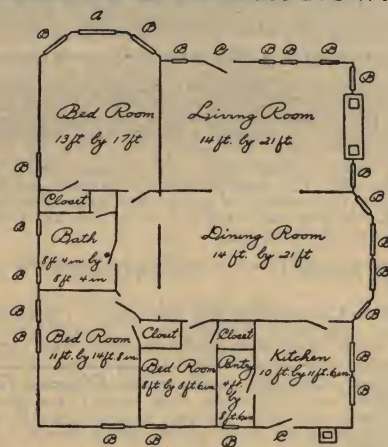 A
B
B
B
C
B
B
B
Bed Room
13 ft by 17 ft
Living Room
14 ft. by 21 ft
B
B
B
Closet
B
Bath
8 ft 4 in by
8 ft 4 in
Dining Room
14 ft. by 21 ft
B
B
B
B
B
B
Bed Room
11 ft. by 14 ft. 8 in
Closet
Closet
Bed Room
8 ft by 8 ft 6 in
Pantry
4 ft.
by
8 ft. 6 in
Kitchen
10 ft by 11 ft. 6 in
B
B
B
B
B
C